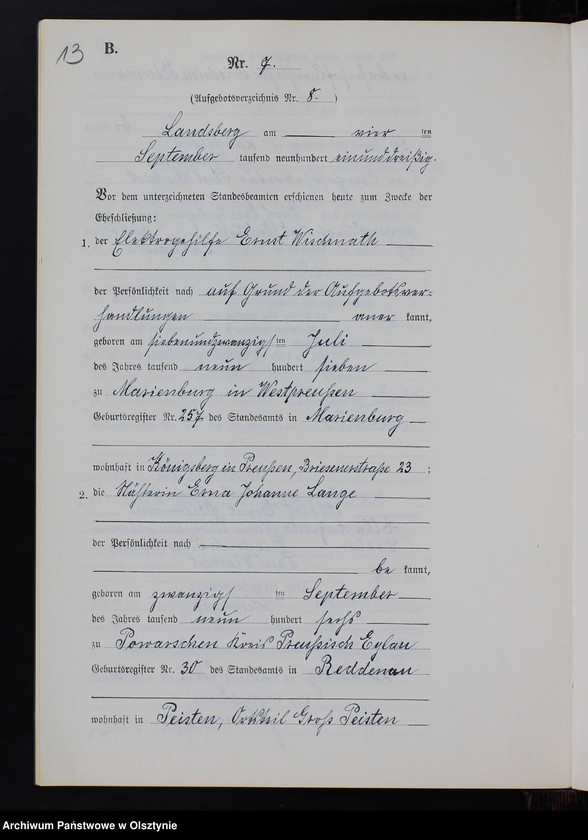 13
B.
Nr. 7.
(Aufgebotsverzeichnis Nr. 8. )
Landsberg am vier ten
September tausend neunhundert einunddreißig.
Vor dem unterzeichneten Standesbeamten erschienen heute zum Zwecke der
Eheschließung:
1. der Elektrogehilfe Ernst
der Persönlichkeit nach auf Grund der Aufgebotsver-
handlungen aner kannt,
geboren am siebenundzwanzigs ten Juli
des Jahres tausend neun hundert sieben
zu Marienburg in Westpreußen
Geburtsregister Nr. 257 des Standesamts in Marienburg
wohnhaft in Königsberg in Preußen, Briesenerstraße 23 ;
2. die Erna Johanne Lange
der Persönlichkeit nach
be kannt,
geboren am zwanzigs ten September
des Jahres tausend neun hundert sechs
zu Powarschen Kreis Preußisch Eylau
Geburtsregister Nr. 30 des Standesamts in Reddenau
wohnhaft in Peisten, Ortsteil Groß Peisten
Archiwum Państwowe w Olsztynie